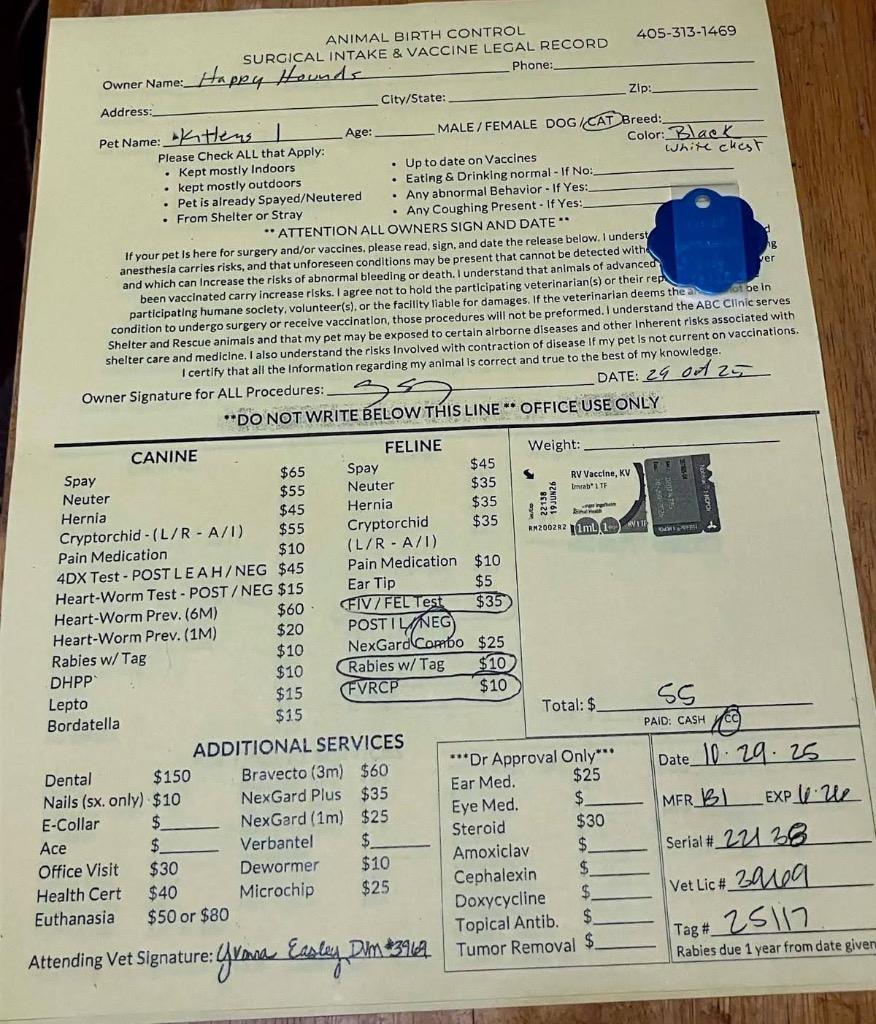 ANIMAL BIRTH CONTROL 405-313-1469
SURGICAL INTAKE & VACCINE LEGAL RECORD
Owner Name: Happy Hounds Phone:
Address: City/State: Zip:
Pet Name: Kittens 1 Age: MALE / FEMALE DOG / CAT Breed:
Color: Black
white chest
Please Check ALL that Apply:
• Kept mostly Indoors
• kept mostly outdoors
• Pet is already Spayed/Neutered
• From Shelter or Stray
• Up to date on Vaccines
• Eating & Drinking normal - If No:
• Any abnormal Behavior - If Yes:
• Any Coughing Present - If Yes:
** ATTENTION ALL OWNERS SIGN AND DATE **
If your pet is here for surgery and/or vaccines, please read, sign, and date the release below. I underst
anesthesia carries risks, and that unforeseen conditions may be present that cannot be detected with
and which can increase the risks of abnormal bleeding or death. I understand that animals of advanced
been vaccinated carry increase risks. I agree not to hold the participating veterinarian(s) or their rep
participating humane society, volunteer(s), or the facility liable for damages. If the veterinarian deems the be in
condition to undergo surgery or receive vaccination, those procedures will not be preformed. I understand the ABC Clinic serves
Shelter and Rescue animals and that my pet may be exposed to certain airborne diseases and other inherent risks associated with
shelter care and medicine. I also understand the risks involved with contraction of disease if my pet is not current on vaccinations.
I certify that all the information regarding my animal is correct and true to the best of my knowledge.
Owner Signature for ALL Procedures: DATE: 29 Oct 25
**DO NOT WRITE BELOW THIS LINE ** OFFICE USE ONLY
CANINE
Spay $65
Neuter $55
Hernia $45
Cryptorchid - (L/R - A/I) $55
Pain Medication $10
4DX Test - POST L E A H / NEG $45
Heart-Worm Test - POST / NEG $15
Heart-Worm Prev. (6M) $60
Heart-Worm Prev. (1M) $20
Rabies w/ Tag $10
DHPP $10
Lepto $15
Bordatella $15
FELINE
Spay $45
Neuter $35
Hernia $35
Cryptorchid $35
(L/R - A/I)
Pain Medication $10
Ear Tip $5
FIV / FEL Test $35
POST I L / NEG
NexGard Combo $25
Rabies w/ Tag $10
FVRCP $10
Weight:
RV Vaccine, KV
Imrab® 1 TF
22138
19JUN26
RM2002R2
1mL
Total: $ 55
PAID: CASH / CC
ADDITIONAL SERVICES
Dental $150
Nails (sx. only) $10
E-Collar $
Ace $
Office Visit $30
Health Cert $40
Euthanasia $50 or $80
Bravecto (3m) $60
NexGard Plus $35
NexGard (1m) $25
Verbantel $
Dewormer $10
Microchip $25
Attending Vet Signature: Yvonna Easley DVM #3969
***Dr Approval Only***
Ear Med. $25
Eye Med. $
Steroid $30
Amoxiclav $
Cephalexin $
Doxycycline $
Topical Antib. $
Tumor Removal $
Date 10.29.25
MFR BI EXP 6.26
Serial # 22138
Vet Lic # 3969
Tag # 25117
Rabies due 1 year from date given